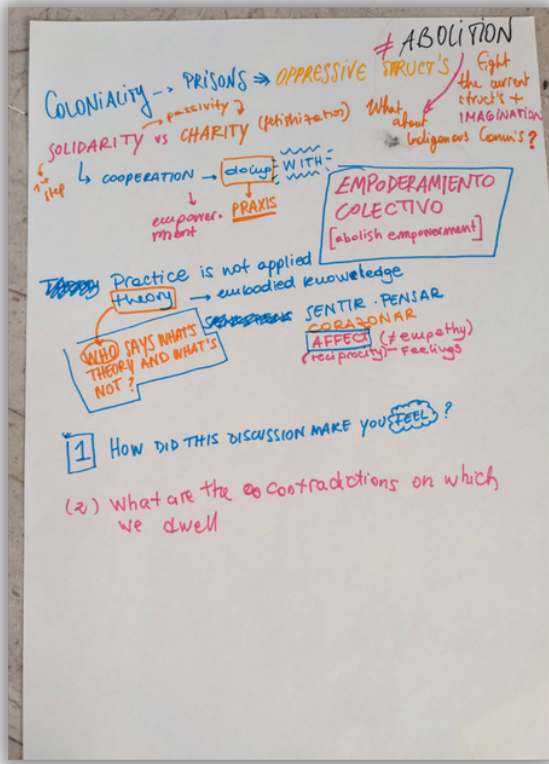 ≠ ABOLITION
COLONIALITY --> PRISONS => OPPRESSIVE STRUCT'S
Fight
the current
struct's +
IMAGINATION
passivity
SOLIDARITY vs CHARITY (fetishization)
1st step
What
about
Indigenous Comm's?
↳ COOPERATION → doing WITH
empower.
ment
PRAXIS
EMPODERAMIENTO
COLECTIVO
[abolish empowerment]
Practice is not applied
theory → embodied knowledge
WHO SAYS WHAT'S
THEORY AND WHAT'S
NOT?
SENTIR · PENSAR
CORAZONAR
AFFECT (≠ empathy)
(reciprocity) - Feelings
1 HOW DID THIS DISCUSSION MAKE YOU FEEL?
(2) What are the contradictions on which
we dwell